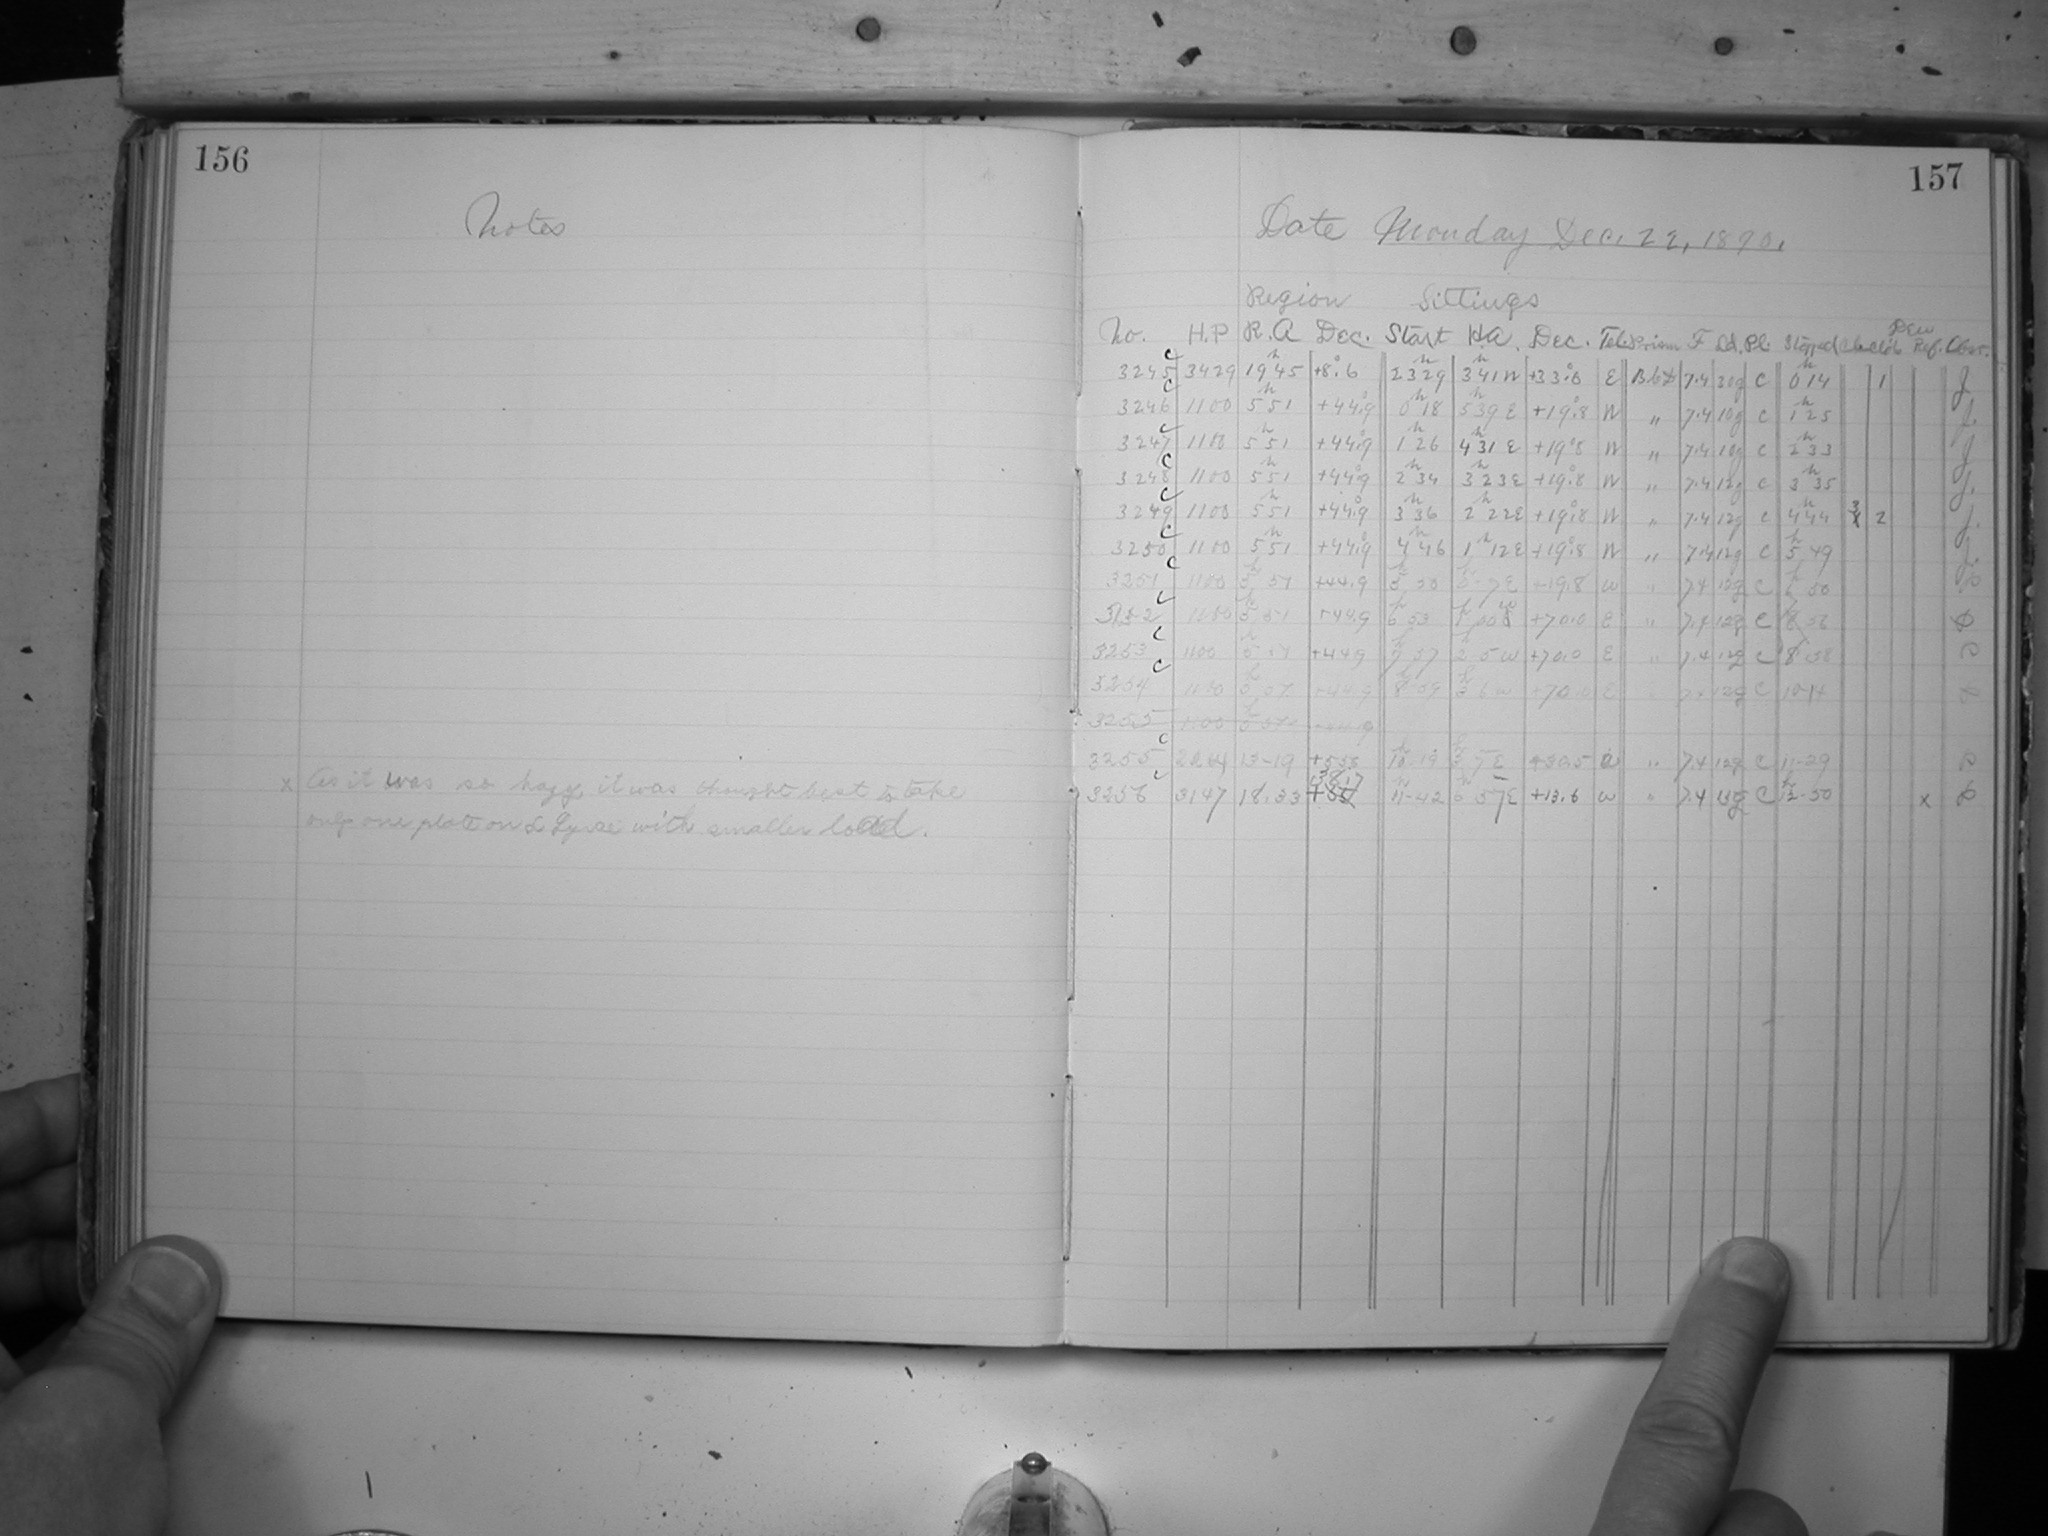 156
Notes
x As it was so hazy it was thought best to take
only one plate on α Lyrae with smaller load.
157
Date Monday Dec. 22, 1890.
Region Sittings
No. H.P R.A Dec. Start H.A. Dec. Tel. Prism F Ld. Pl. Stopped Clo. Clob Dew Ref. Obsr.
3245 c 3429 19h45 +8°.6 23h29 3h41W +33°.6 E B.6 7.4 20g C 0h14 1 J.
3246 c 1100 5h51 +44°.9 0h18 5h39E +19°.8 W " 7.4 10g C 1h25 J.
3247 c 1100 5h51 +44°.9 1h26 4h31E +19°.8 W " 7.4 10g C 2h33 J.
3248 c 1100 5h51 +44°.9 2h34 3h23E +19°.8 W " 7.4 12g C 3h35 J.
3249 c 1100 5h51 +44°.9 3h36 2h22E +19°.8 W " 7.4 12g C 4h44 3 2 J.
3250 c 1100 5h51 +44°.9 4h46 1h12E +19°.8 W " 7.4 12g C 5h49 J.
3251 c 1100 5h51 +44.9 5h50 0h7E +19.8 W " 7.4 12g C 6h50
3252 c 1100 5h51 +44.9 6h53 1h00W +70.0 E " 7.4 12g C 7h56
3253 c 1100 5h51 +44.9 7h57 2h5W +70.0 E " 7.4 12g C 8h58
3254 c 1100 5h51 +44.9 8h59 3h6W +70.0 E " 7.4 12g C 10-14
3255 1100 5h51 +44.9
3255 c 2264 13-19 +55.5 10h19 3h7E +30.5 W " 7.4 12g C 11-29
3256 c 3147 18.33 +38.7 11h-42 6h57E +13.6 W " 7.4 13g C 12h-50 x